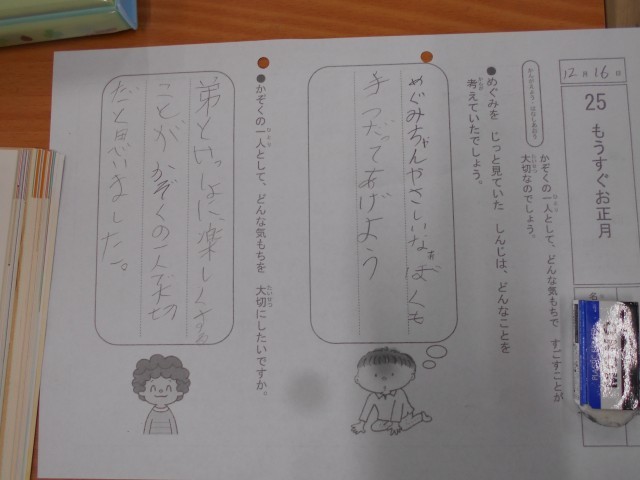 12月16日
25 もうすぐお正月
名
かぞくの一人として、どんな気もちで すごすことが
大切なのでしょう。
●めぐみを じっと見ていた しんじは、どんなことを
考えていたでしょう。
めぐみちゃんやさしいなぁ ぼくも
手つだってあげよう
●かぞくの一人として、どんな気もちを 大切にしたいですか。
弟といっしょに楽しくする
ことが かぞくの一人で大切
だと思いました。